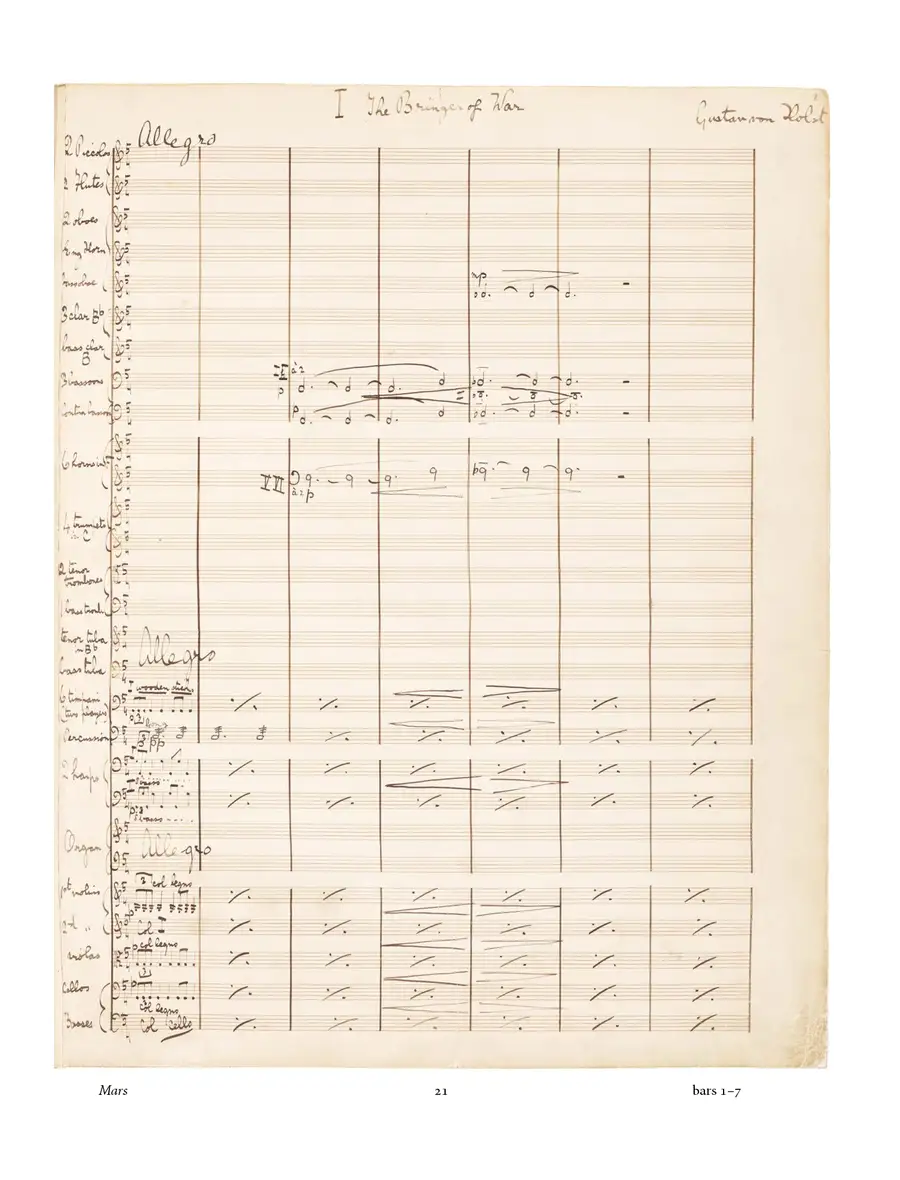 I The Bringer of War
Gustav von Holst
Allegro
2 Piccolos
2 Flutes
2 oboes
Eng Horn
bass oboe
3 clar Bb
bass clar
B
3 bassoons
Contra bassoon
6 horns in F
4 trumpets
in C
2 tenor
trombones
1 bass tromb
tenor tuba
in Bb
bass tuba
Allegro
6 timpani
(two players)
I wooden sticks
Percussion
pp
2 harps
Organ
Allegro
1st violins
col legno
2nd "
Col I
violas
col legno
cellos
col legno
Basses
Col Cello
I II
à 2
p
p
p
V VI
à 2 p
Mars
21
bars 1–7